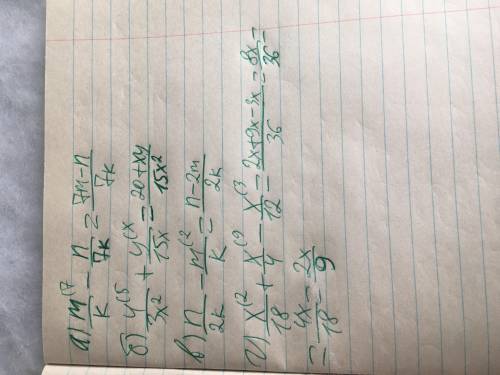 а) m⁽⁷/k − n/7k = 7m−n/7k
б) 4⁽⁵/3x² + y⁽ˣ/15x = 20+xy/15x²
в) n/2k − m⁽²/k = n−2m/2k
г) x⁽²/18 + x⁽⁹/4 − x⁽³/12 = 2x+9x−3x/36 = 8x/36 =
= 4x/18 = 2x/9